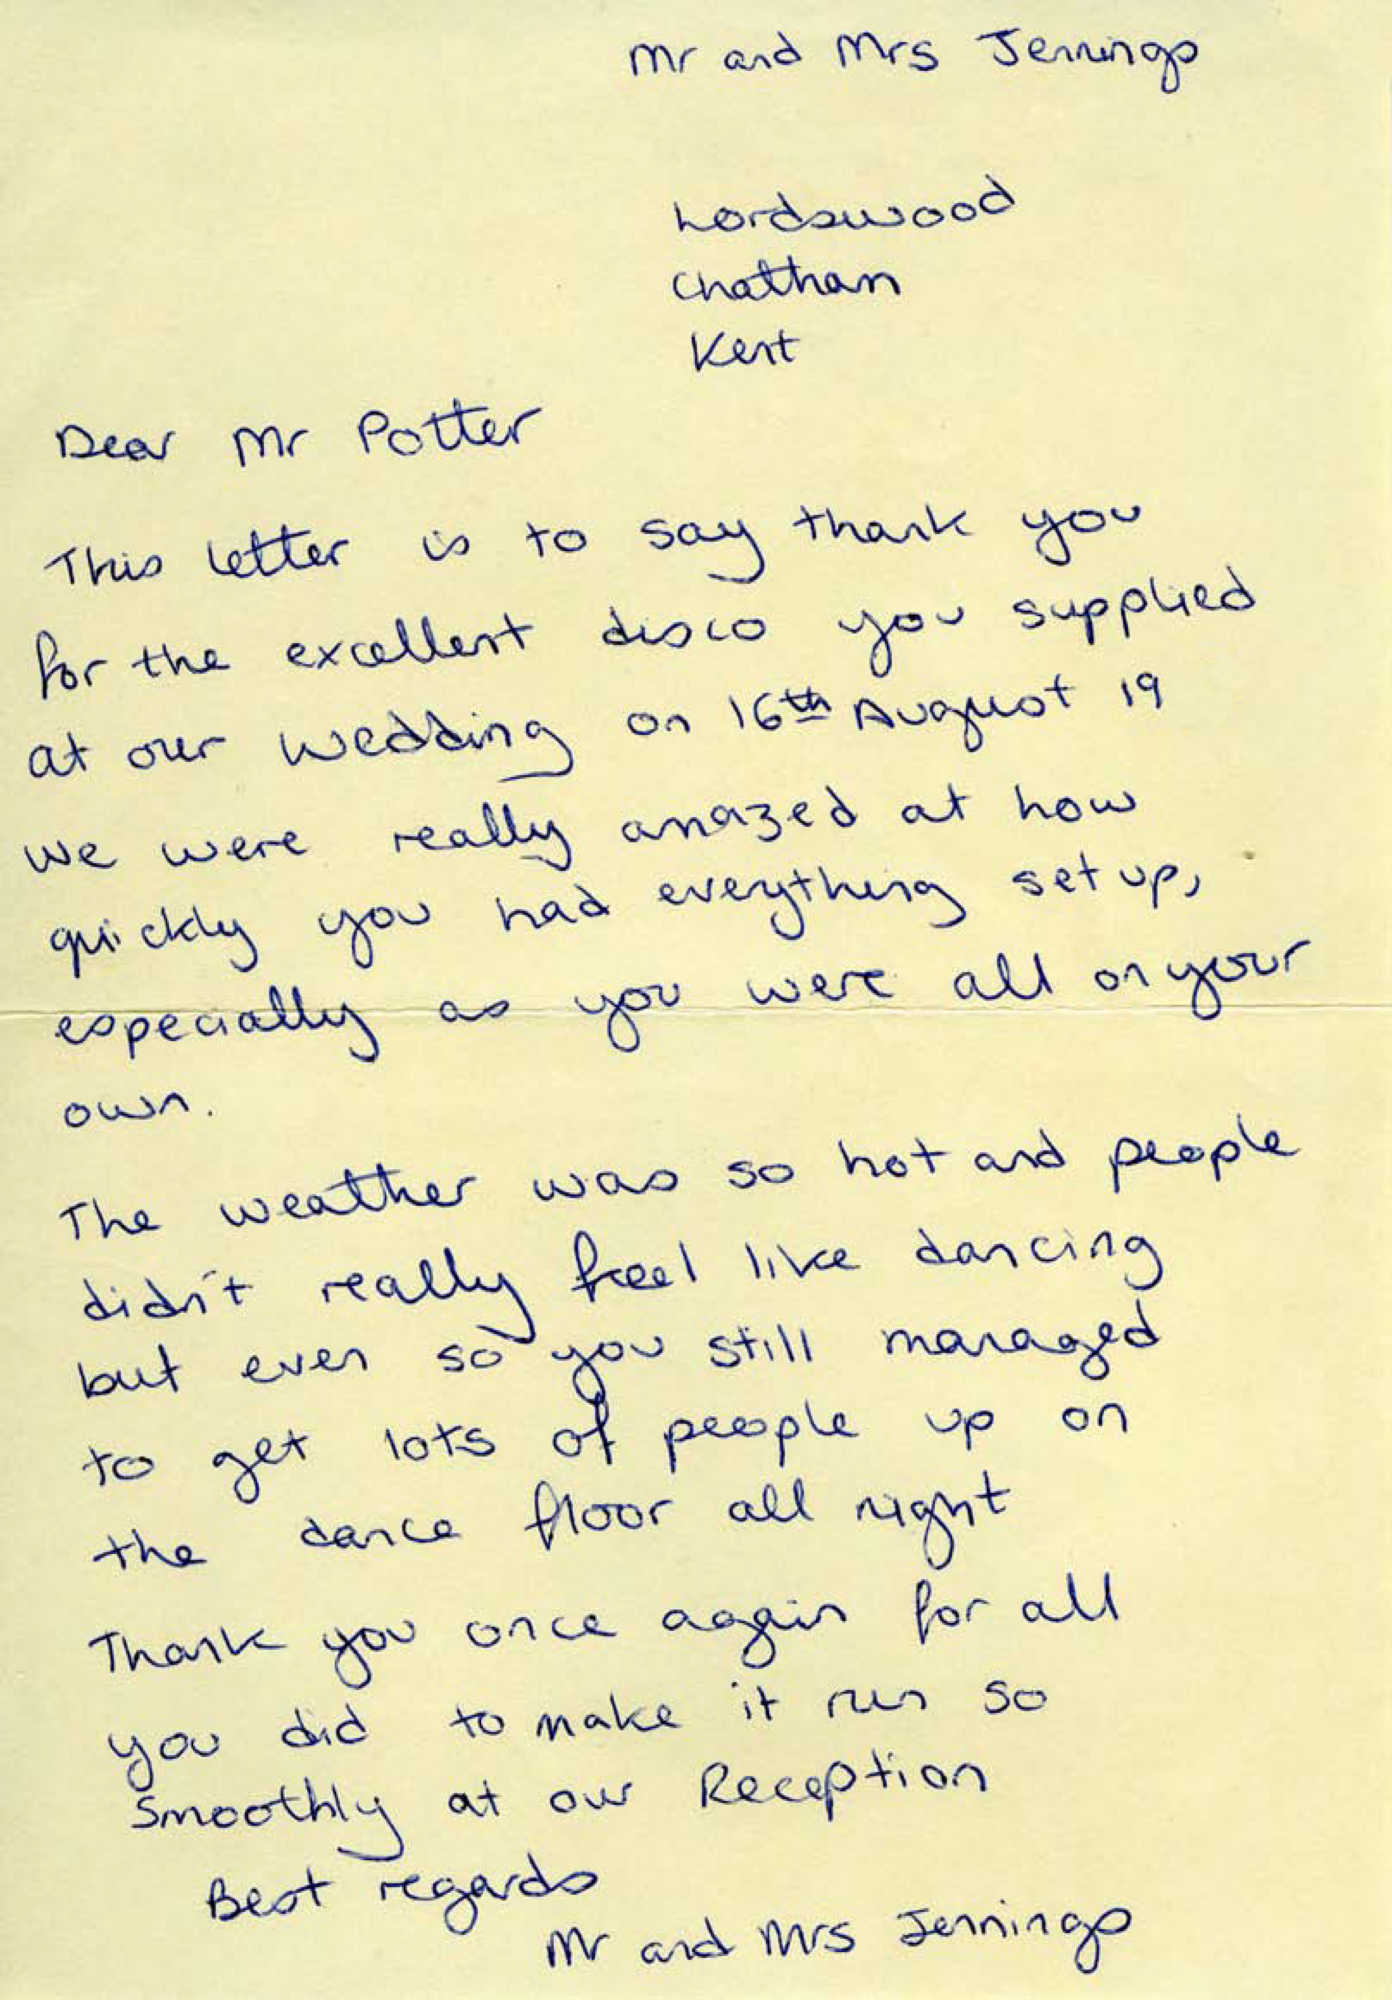 Mr and Mrs Jennings
Lordswood
Chatham
Kent
Dear Mr Potter
This letter is to say thank you
for the excellent disco you supplied
at our wedding on 16th August 19
We were really amazed at how
quickly you had everything set up,
especially as you were all on your
own.
The weather was so hot and people
didn't really feel like dancing
but even so you still managed
to get lots of people up on
the dance floor all night
Thank you once again for all
you did to make it run so
Smoothly at our Reception
Best regards
Mr and Mrs Jennings